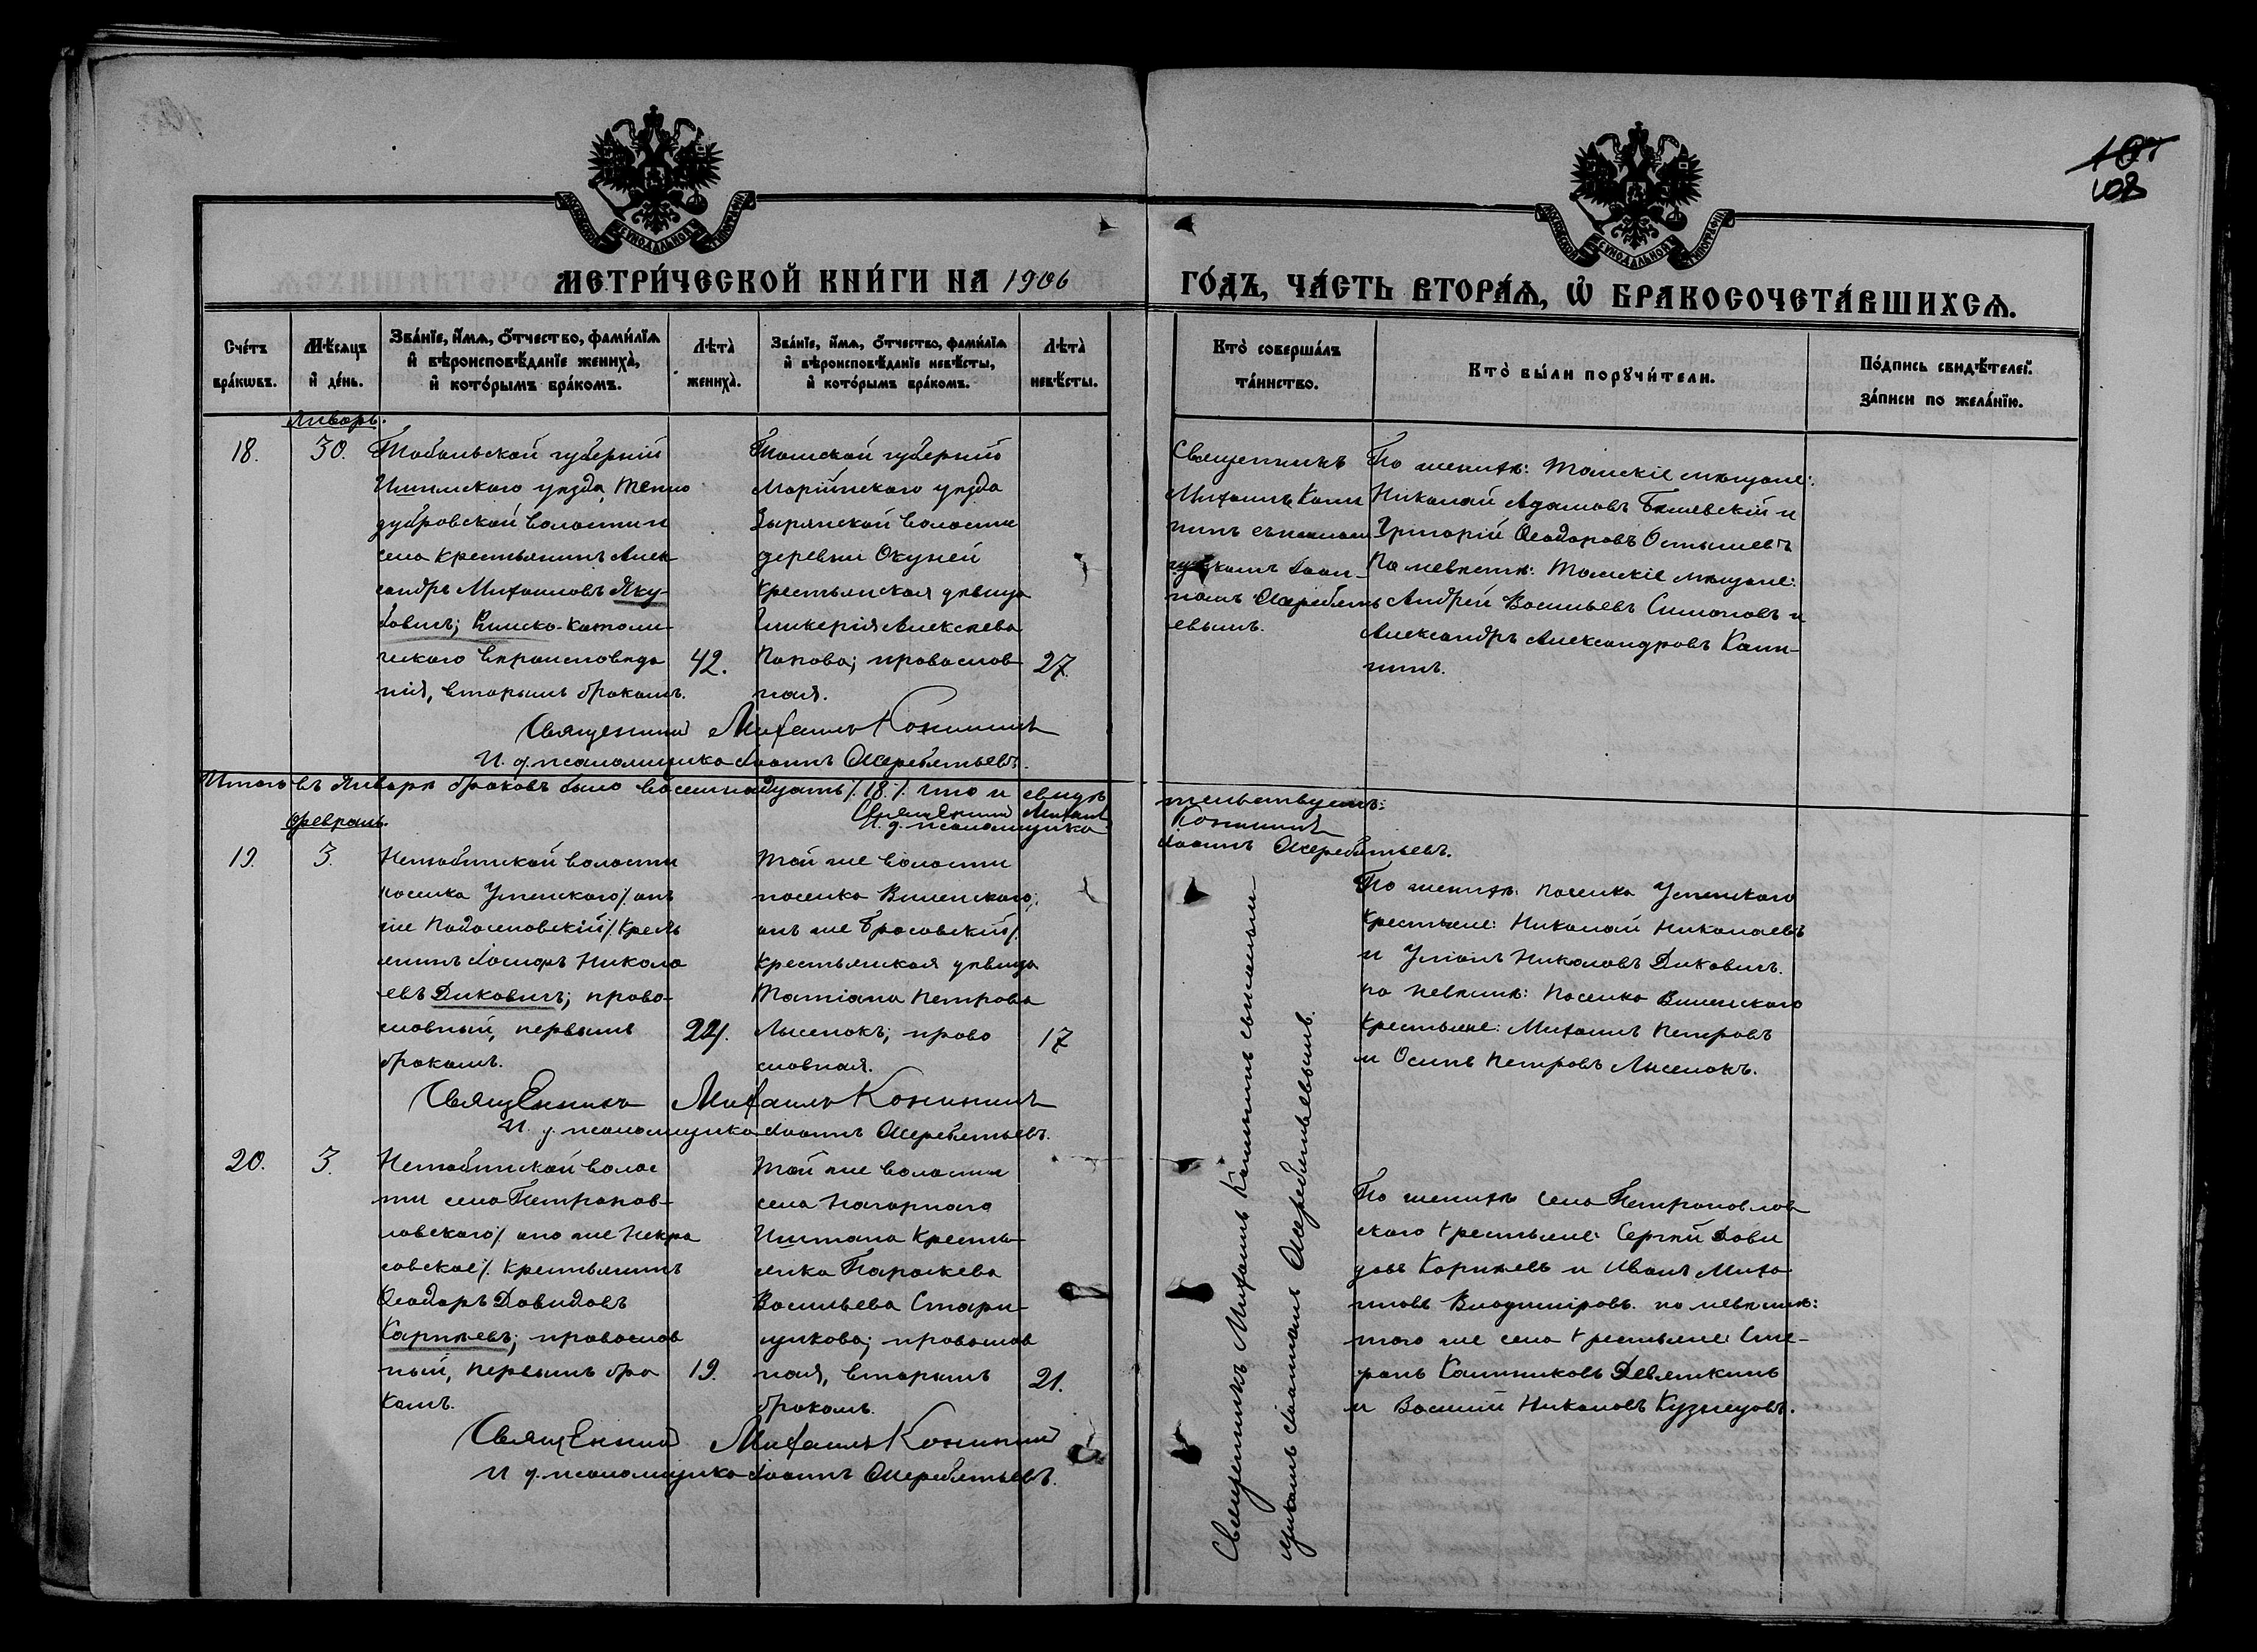 107
108
МЕТРИ́ЧЕСКОЙ КНИ́ГИ НА 1906
ГО́ДЪ, ЧА́СТЬ ВТОРА́Ѧ, Ѡ҆ БРАКОСОЧЕТА́ВШИХСѦ.
Сче́тъ бра́кѡвъ.
Мѣ́сѧцъ и҆ де́нь.
Зва́нїе, и҆́мѧ, ѻ҆́тчество, фами́лїѧ и҆ вѣроисповѣ́данїе жениха̀, и҆ кото́рымъ бра́комъ.
Лѣта̀ жениха̀.
Зва́нїе, и҆́мѧ, ѻ҆́тчество, фами́лїѧ и҆ вѣроисповѣ́данїе невѣ́сты, и҆ кото́рымъ бра́комъ.
Лѣта̀ невѣ́сты.
Кто̀ соверша́лъ та́инство.
Кто̀ бы́ли порꙋчи́тели.
По́дпись свидѣ́телей за́писи по жела́нїю.
Январь.
18.
30.
Тобольской губерніи
Ишимскаго уѣзда, Тепло
дубровской волости и
села крестьянинъ Алек-
сандръ Михаиловъ Яку-
бовичъ; Римско-католи-
ческаго вѣроисповѣда
нія, вторымъ бракомъ.
42.
Томской губерніи
Маріинскаго уѣзда
Зырянской волости
деревни Окуней
крестьянская дѣвица
Гликерія Алексѣева
Попова; православ
ная.
27.
Священникъ
Михаилъ Кони
нинъ съ псалом
щикомъ Іоан-
номъ Жеребять
евымъ.
По женихѣ: Томскіе мѣщане:
Николай Адамовъ и
Григорій Ѳеодоровъ
По невѣстѣ: Томскіе мѣщане:
Андрей Васильевъ Симоновъ и
Александръ Александровъ Кани-
нинъ.
Священникъ Михаилъ Конининъ
И. д. псаломщика Іоаннъ Жеребятьевъ.
Итого въ Январѣ браковъ было восемнадцать /.18./. что и свидѣ
тельствуемъ:
Священникъ Михаилъ Конининъ
И. д. псаломщика Іоаннъ Жеребятьевъ.
февраль.
19.
3.
Нелюбинской волости
поселка Успенскаго /.онъ
же Подосеновскій/. кресть
янинъ Іосифъ Никола
евъ Диковичъ; право-
славный, первымъ
бракомъ.
24.
Той же волости
поселка Виленскаго;
онъ же Бросовскій/.
крестьянская дѣвица
Татіана Петрова
Лысенокъ; право
славная.
17
По женихѣ: поселка Успенскаго
крестьяне: Николай Николаевъ
и Уліанъ Николовъ Диковичъ.
по невѣстѣ: поселка Виленскаго
крестьяне: Михаилъ Петровъ
и Осипъ Петровъ Лысенокъ.
Священникъ Михаилъ Конининъ
И. д. псаломщика Іоаннъ Жеребятьевъ.
20.
3.
Нелюбинской волос
ти села Петропав-
ловскаго/. оно же Некра
совское/. крестьянинъ
Ѳеодоръ Давидовъ
Карпѣевъ; православ
ный, первымъ бра
комъ.
19.
Той же волости
села Нагорнаго
Иштана крестья-
нка Параскева
Васильева Стари-
цикова; православ
ная, вторымъ
бракомъ.
21.
По женихѣ села Петропавлов
скаго крестьяне: Сергѣй Дави
довъ Карпѣевъ и Иванъ Миха
иловъ Владиміровъ. по невѣстѣ:
того же села крестьяне: Сте-
фанъ Девяткинъ
и Василій Николовъ Кузнецовъ.
Священникъ Михаилъ Конининъ
И. д. псаломщика Іоаннъ Жеребятьевъ.
Священникъ Михаилъ Конининъ съ псалом
щикомъ Іоанномъ Жеребятьевымъ.